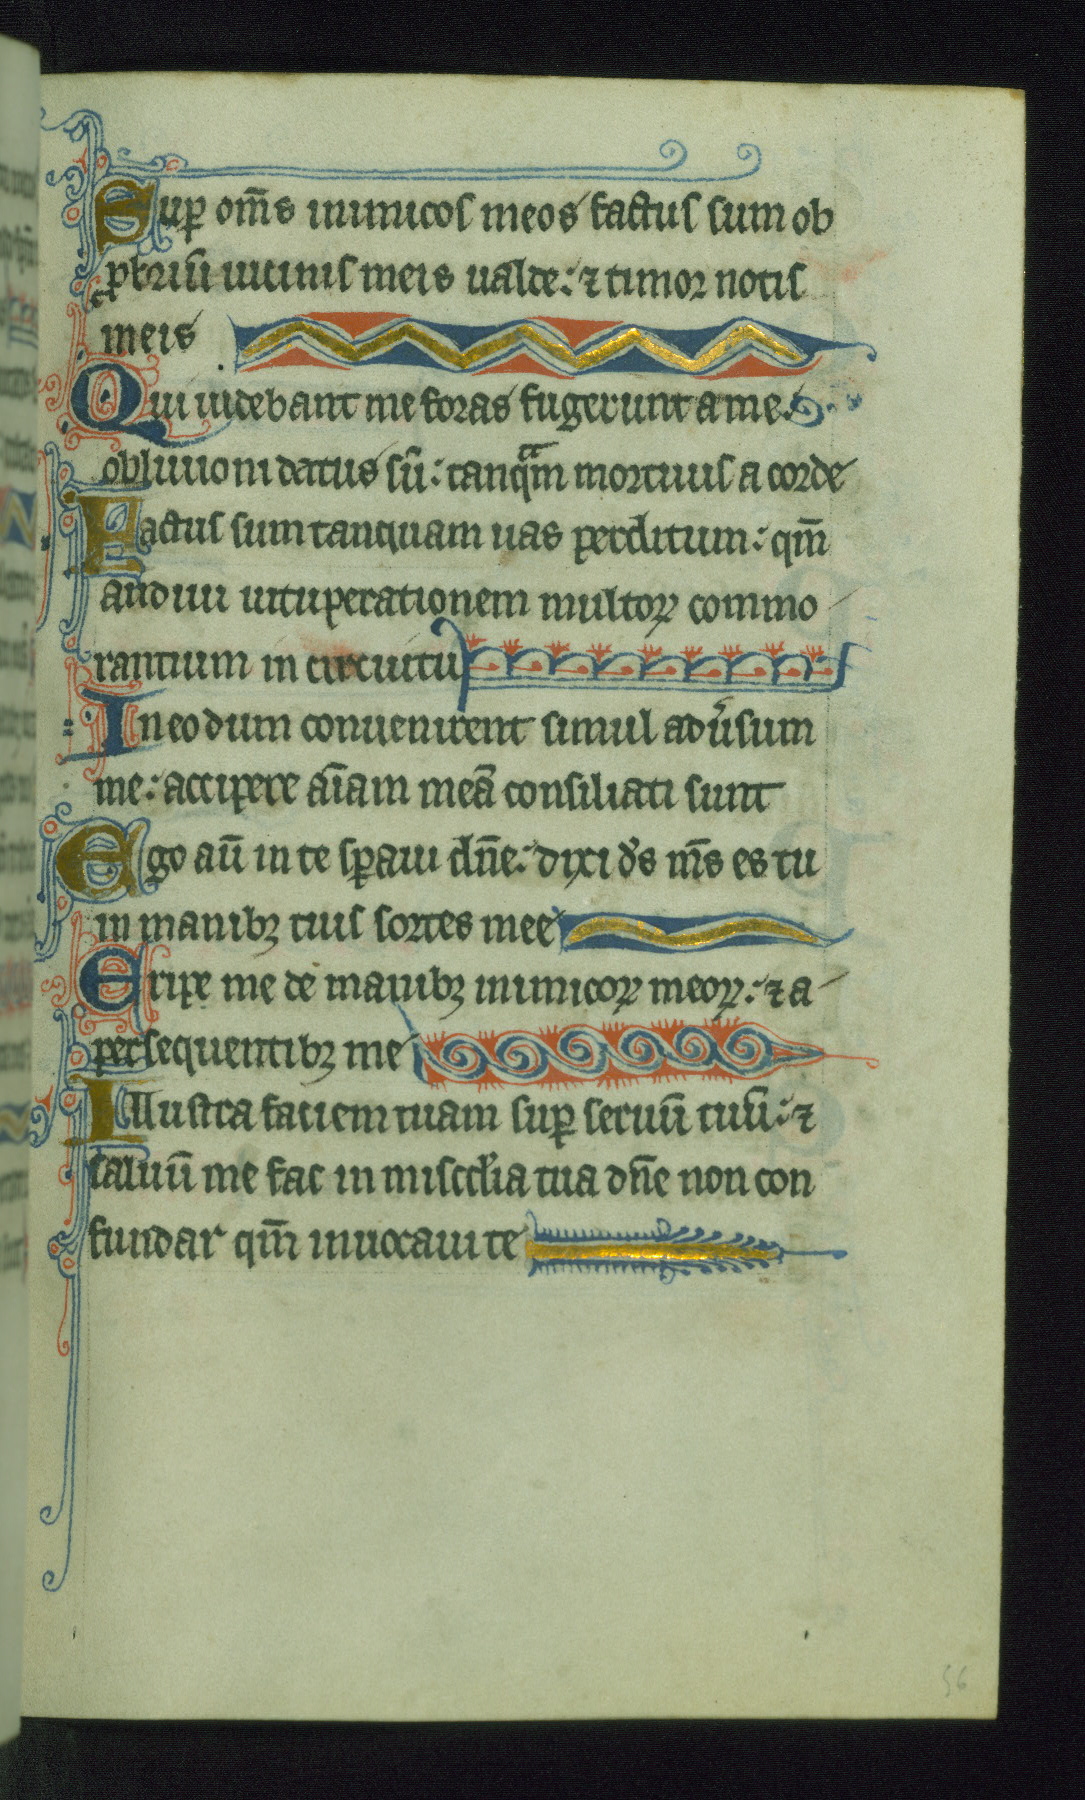 Sup om̄s inimicos meos factus sum ob
ꝓbriū uicinis meis ualde: ⁊ timor notis
meis
Qui uidebant me foras fugerunt a me.
obliuioni datus sū: tanqᵃm mortuus a corde
Factus sum tanquam uas perditum: qm̄
audiui uituperationem multoꝝ commo
rantium in circuitu
In eo dum conuenirent simul adūsum
me: accipere aīam meā consiliati sunt
Ego aū in te sꝑaui dn̄e: dixi d̄s m̄s es tu
in manibꝫ tuis sortes mee
Eripe me de manibꝫ inimicoꝝ meoꝝ: ⁊ a
persequentibꝫ me
Illustra faciem tuam suꝑ seruū tuū: ⁊
saluū me fac in misccd̄ia tua dn̄e non con
fundar qm̄ inuocaui te
56